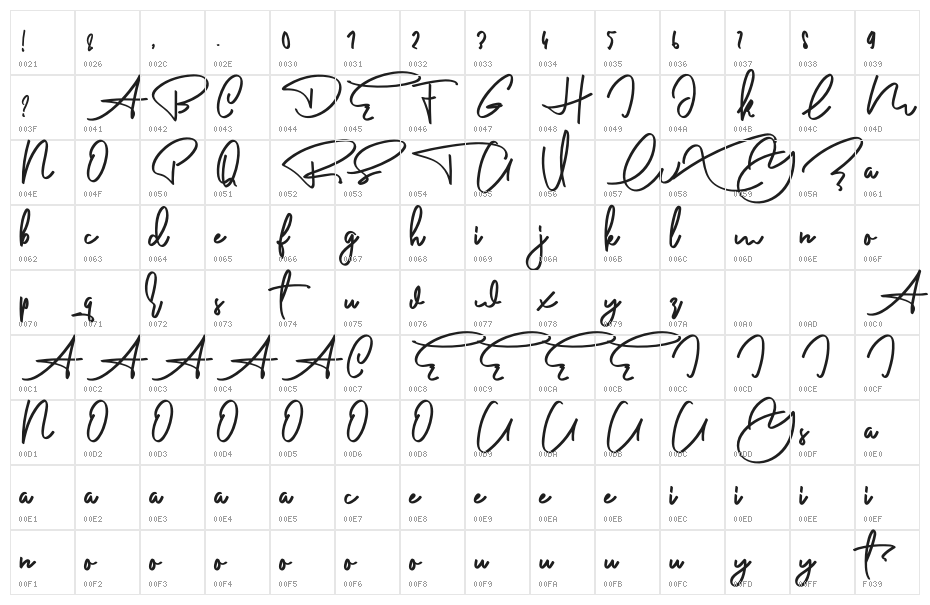 ! & , . 0 1 2 3 4 5 6 7 8 9
0021 0026 002C 002E 0030 0031 0032 0033 0034 0035 0036 0037 0038 0039
? A B C D E F G H I J K L M
003F 0041 0042 0043 0044 0045 0046 0047 0048 0049 004A 004B 004C 004D
N O P Q R S T U V W X Y Z a
004E 004F 0050 0051 0052 0053 0054 0055 0056 0057 0058 0059 005A 0061
b c d e f g h i j k l m n o
0062 0063 0064 0065 0066 0067 0068 0069 006A 006B 006C 006D 006E 006F
p q r s t u v w x y z A
0070 0071 0072 0073 0074 0075 0076 0077 0078 0079 007A 00A0 00AD 00C0
A A A A A C E E E E I I I I
00C1 00C2 00C3 00C4 00C5 00C7 00C8 00C9 00CA 00CB 00CC 00CD 00CE 00CF
N O O O O O O U U U U Y s a
00D1 00D2 00D3 00D4 00D5 00D6 00D8 00D9 00DA 00DB 00DC 00DD 00DF 00E0
a a a a a c e e e e i i i i
00E1 00E2 00E3 00E4 00E5 00E7 00E8 00E9 00EA 00EB 00EC 00ED 00EE 00EF
n o o o o o o u u u u y y
00F1 00F2 00F3 00F4 00F5 00F6 00F8 00F9 00FA 00FB 00FC 00FD 00FF F039